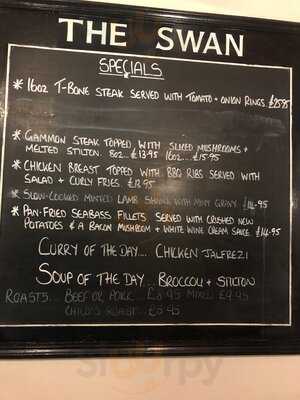 THE SWAN
SPECIALS
* 16oz T-BONE STEAK SERVED WITH TOMATO + ONION RINGS.
* GAMMON STEAK TOPPED WITH SLICED MUSHROOMS +
MELTED STILTON. 8oz... £13.95 16oz... £15.95
* CHICKEN BREAST TOPPED WITH BBQ RIBS SERVED WITH
SALAD + CURLY FRIES. £12.95
* SLOW-COOKED MINTED LAMB SHANK WITH MINT GRAVY £14.95
* PAN-FRIED SEABASS FILLETS SERVED WITH CRUSHED NEW
POTATOES & A BACON MUSHROOM + WHITE WINE CREAM SAUCE £14.95
CURRY OF THE DAY.... CHICKEN JALFREZI
SOUP OF THE DAY... BROCCOLI + STILTON
ROASTS... BEEF OR PORK... £8.95 MIXED £9.95
CHILDS ROAST...